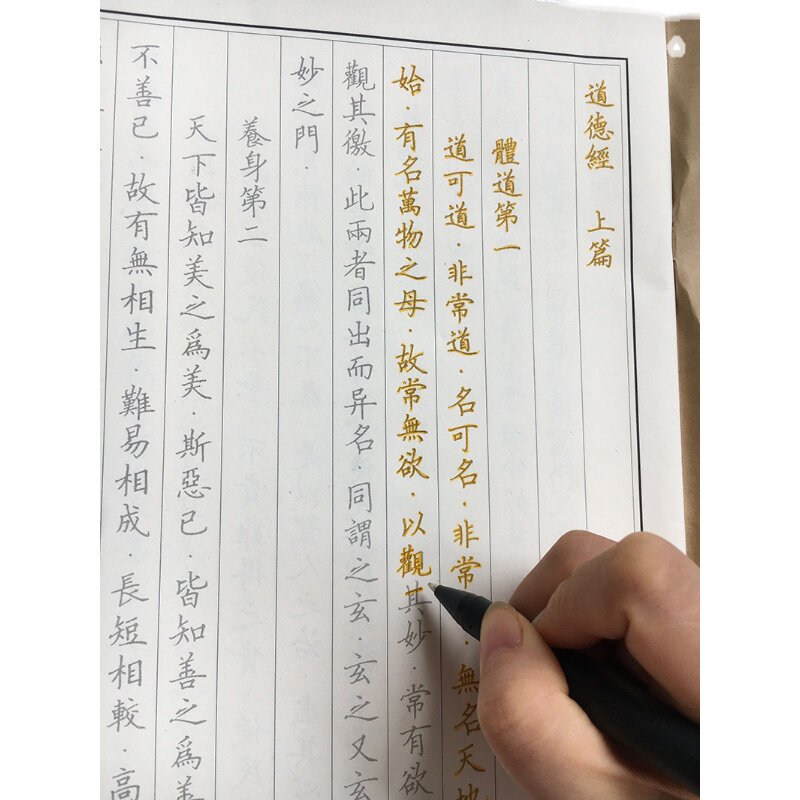 道德經 上篇
體道第一
道可道．非常道．名可名．非常．無名天地
始．有名萬物之母．故常無欲．以觀其妙．常有欲
觀其徼．此兩者同出而异名．同謂之玄．玄之又玄
妙之門．
養身第二
天下皆知美之爲美．斯惡已．皆知善之爲善
不善已．故有無相生．難易相成．長短相較．高